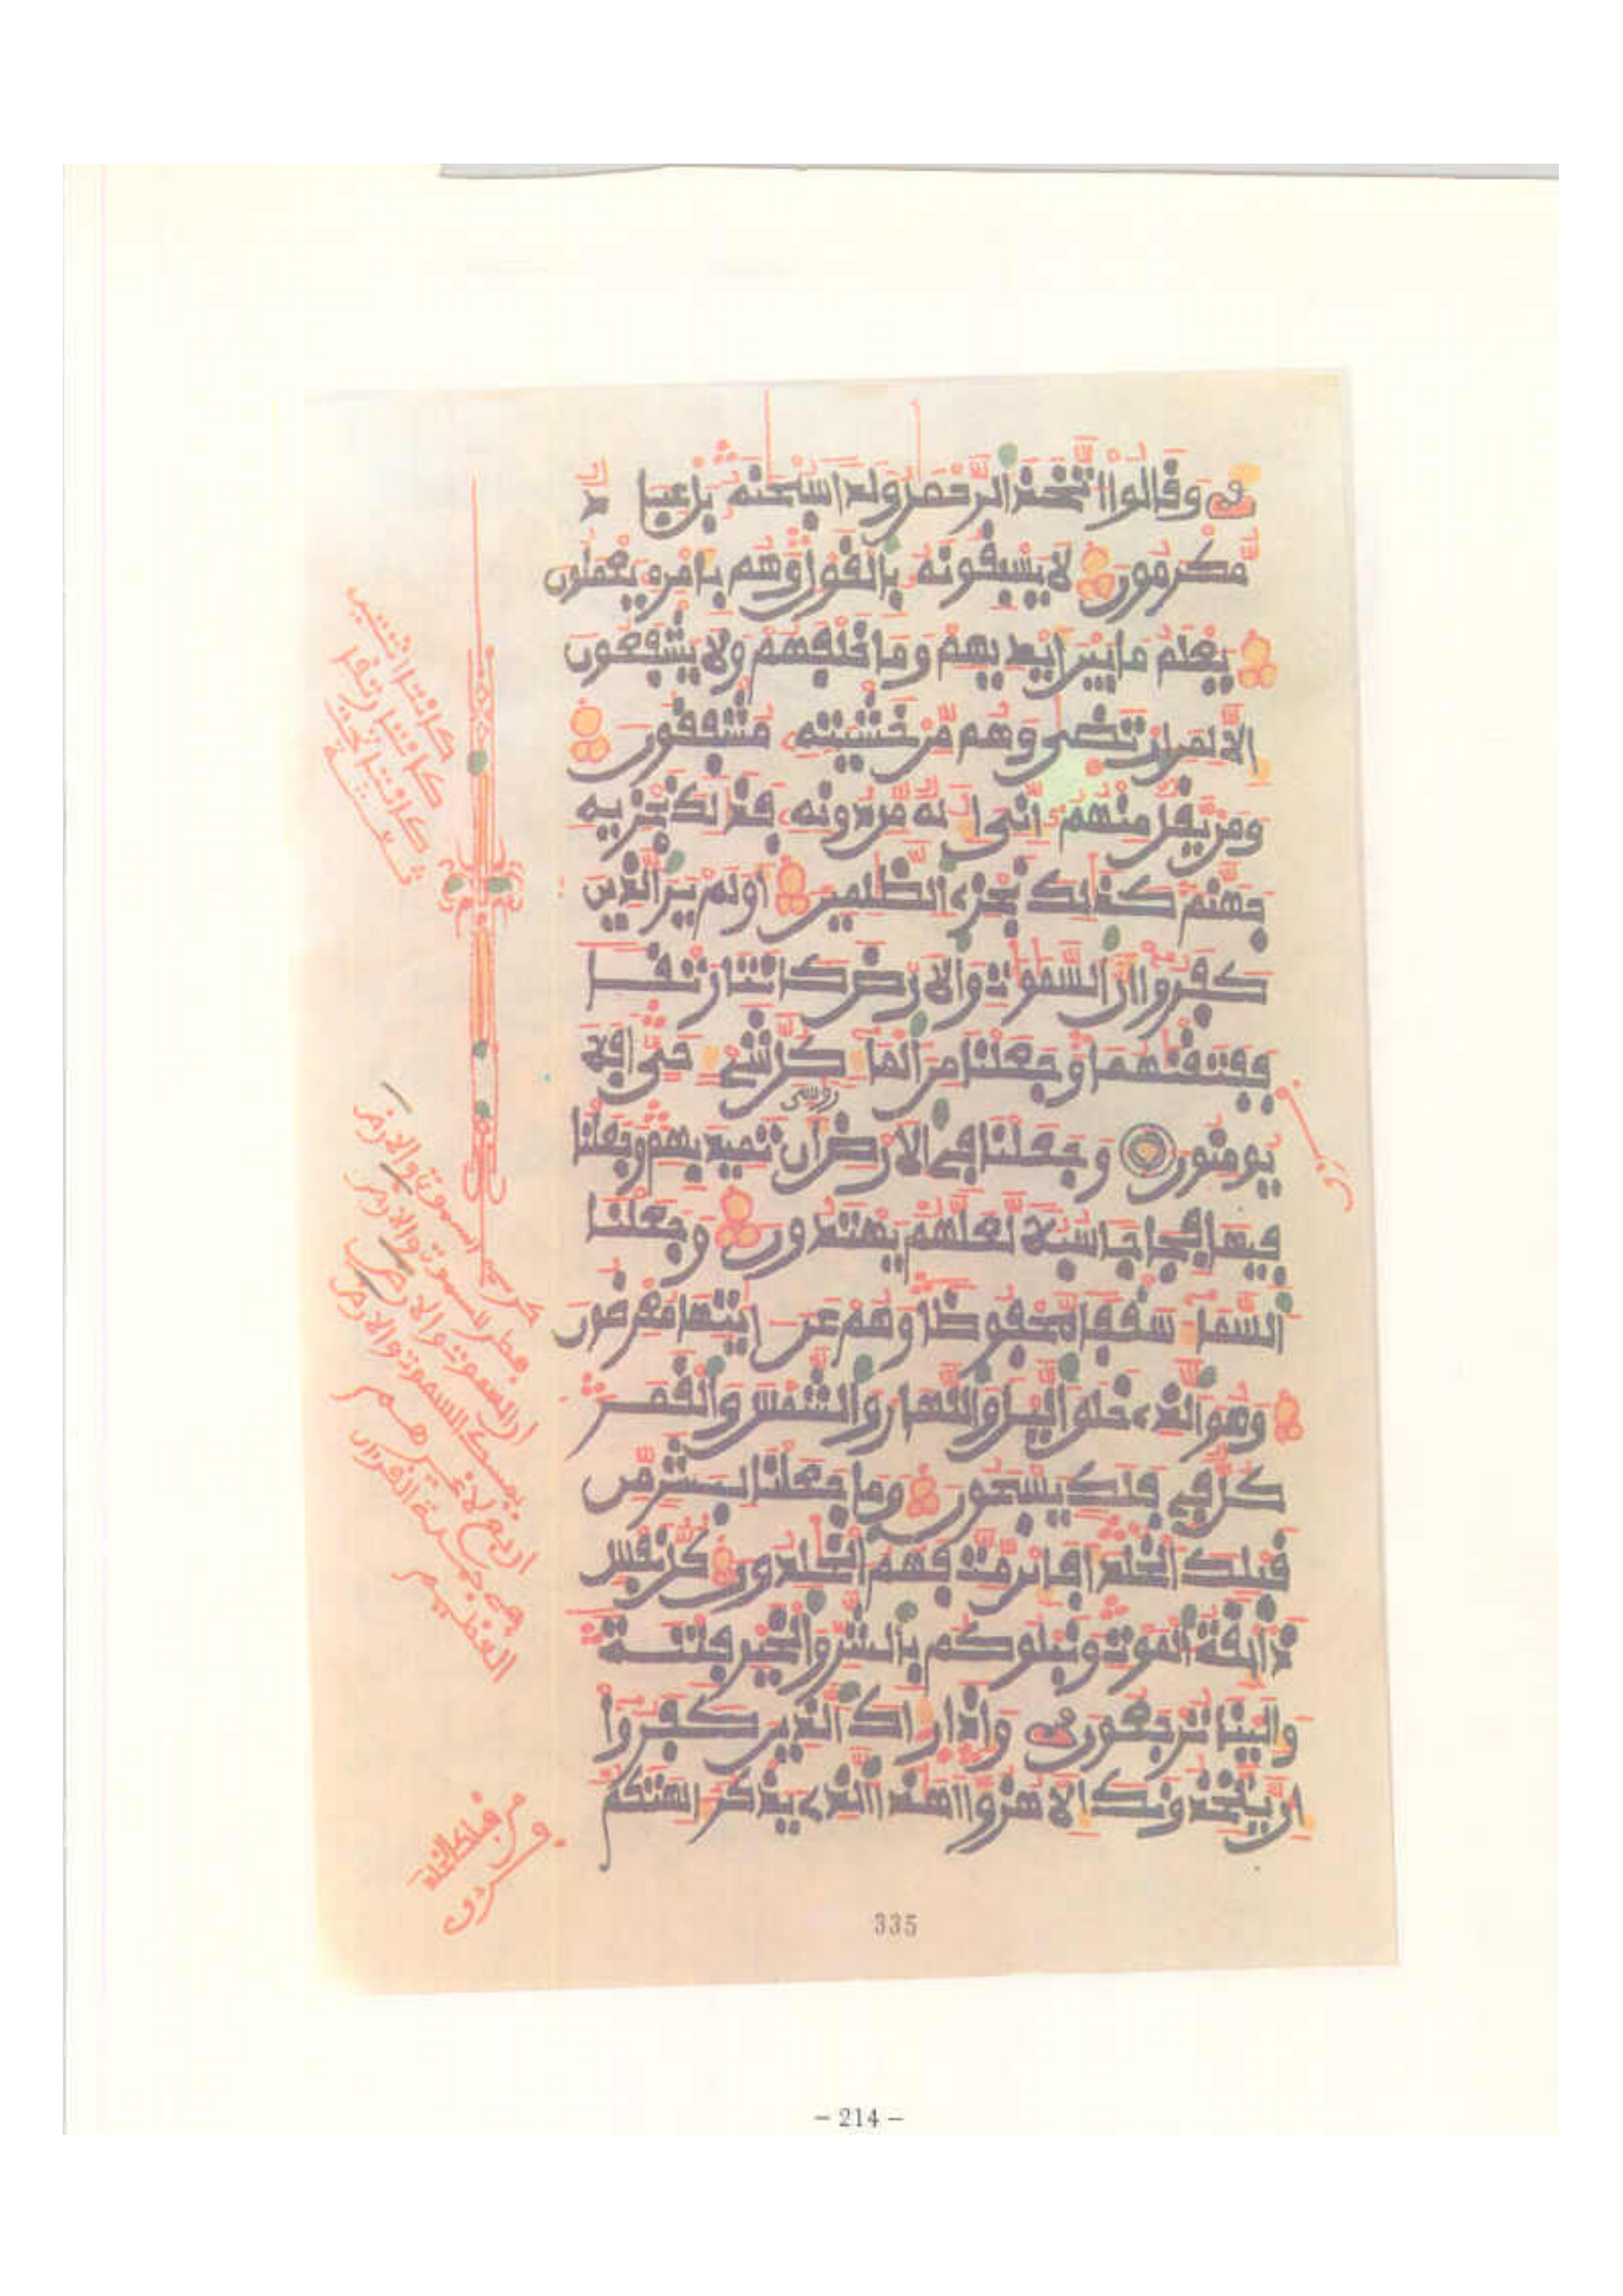 وقالوا اتخذ الرحمن ولدا سبحنه بل عبا د
مكرمون لا يسبقونه بالقول وهم بامره يعملون
يعلم ما بين ايديهم وما خلفهم ولا يشفعون
الا لمن ارتضى وهم من خشيته مشفقون
ومن يقل منهم انى اله من دونه فذلك نجزيه
جهنم كذلك نجزي الظلمين اولم ير الذين
كفروا ان السموت والارض كانتا رتقا
ففتقنهما وجعلنا من الما كل شي حتى افلا
روسى
يومنون وجعلنا في الارض ان تميد بهم وجعلنا
فيها فجاجا سبلا لعلهم يهتدون وجعلنا
السما سقفا محفوظا وهم عن ايتها معرضون
وهو الذي خلق اليل والنهار والشمس والقمر
كل في فلك يسبحون وما جعلنا لبشر من
قبلك الخلد افاين مت فهم الخلدون كل نفس
ذايقة الموت ونبلوكم بالشر والخير فتنة
والينا ترجعون واذا راك الذين كفروا
ان يتخذونك الا هزوا اهذا الذي يذكر الهتكم
كانتا اثنتين
كانتا رتقا
كانتا تحت
السموت والارض
فطر السموت والارض
ان السموت والارض
يمسك السموت والارض
اربع لا غيرهم
القران
العظيم
335
- 214 -